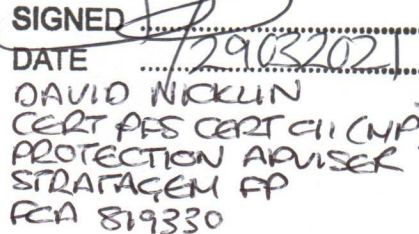 SIGNED
DATE 29032021
DAVID NICKLIN
CERT PFS CERT CII (MP
PROTECTION ADVISER
STRATAGEM FP
FCA 819330